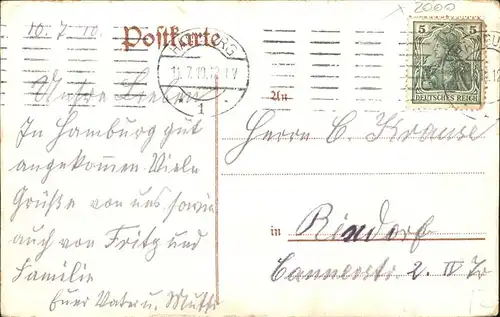 2000
10. 7. 10.
Postkarte
HAMBURG
11.7.10.
1
5 5
DEUTSCHES REICH
Unsre Lieben
In Hamburg gut
angekommen. Viele
Grüße von uns, sowie
auch von Fritz und
Familie
Euer Vater u. Mutter
An
Herrn C Krause
in Rixdorf
2. IV Tr